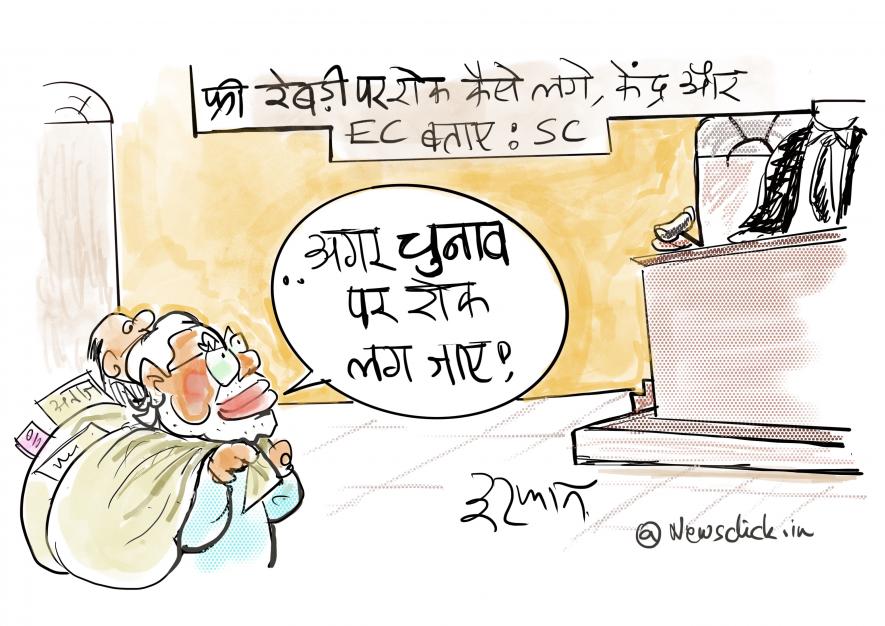 फ्री रेबड़ी पर रोक कैसे लगे, केंद्र और
EC बताए: SC
..अगर चुनाव
पर रोक
लग जाए!
इरफान
@Newsclick.in